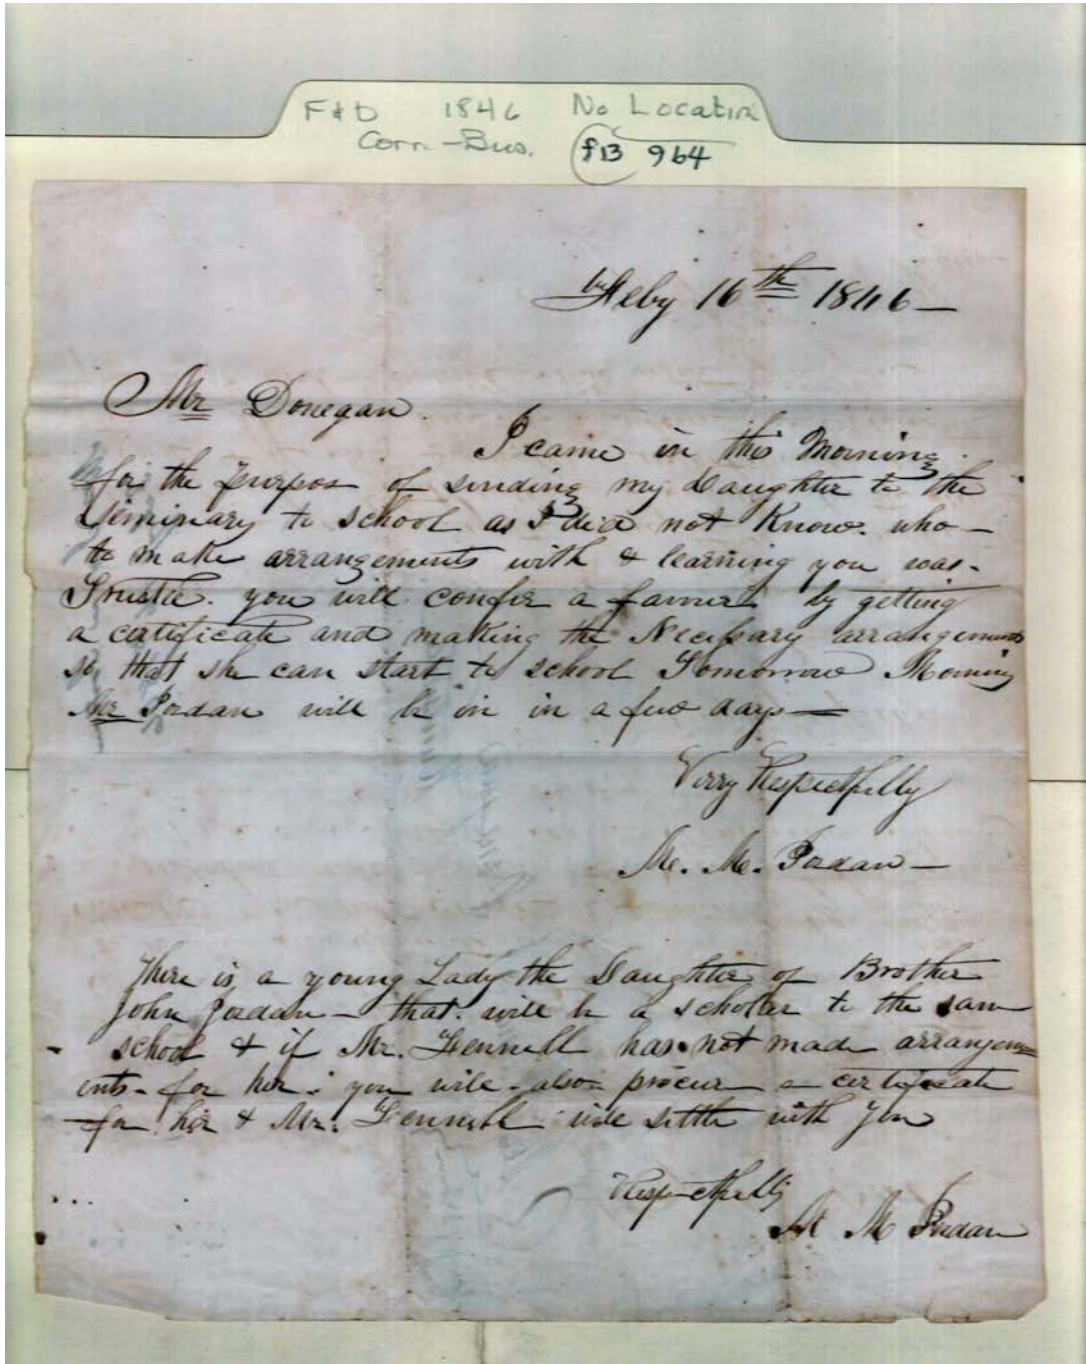 F&D 1846 No Location
Corr-Bus. f13 964
Feby 16th 1846—
Mr Donegan.
I came in this Morning
for the purpos of sending my Daughter to the
Siminary to school as I did not Know. who—
to make arrangements with & learning you was-
Trustee. you will confer a favour by getting
a certificate and making the Necessary arrangements
so that she can start to school Tomorrow Morning
Mr Jordan will be in in a few days—
Verry Respectfully
M. M. Jordan—
There is a young Lady the Daughter of Brother
John Jordan— that. will be a scholar to the sam
school & if Mr. Fennell has not made arrangem
ents- for her. you will- also procur a certificate
for her & Mr. Fennell will settle with you
Respectfully
M M Jordan